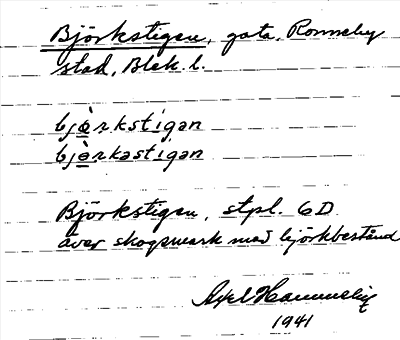 Björkstigen, gata, Ronneby
stad, Blek. l.
bjø̀rkstigən
bjø̀rkəstigən
Björkstigen, stpl. 6D
över skogsmark med björkbestånd
Axel Hammelig
1941